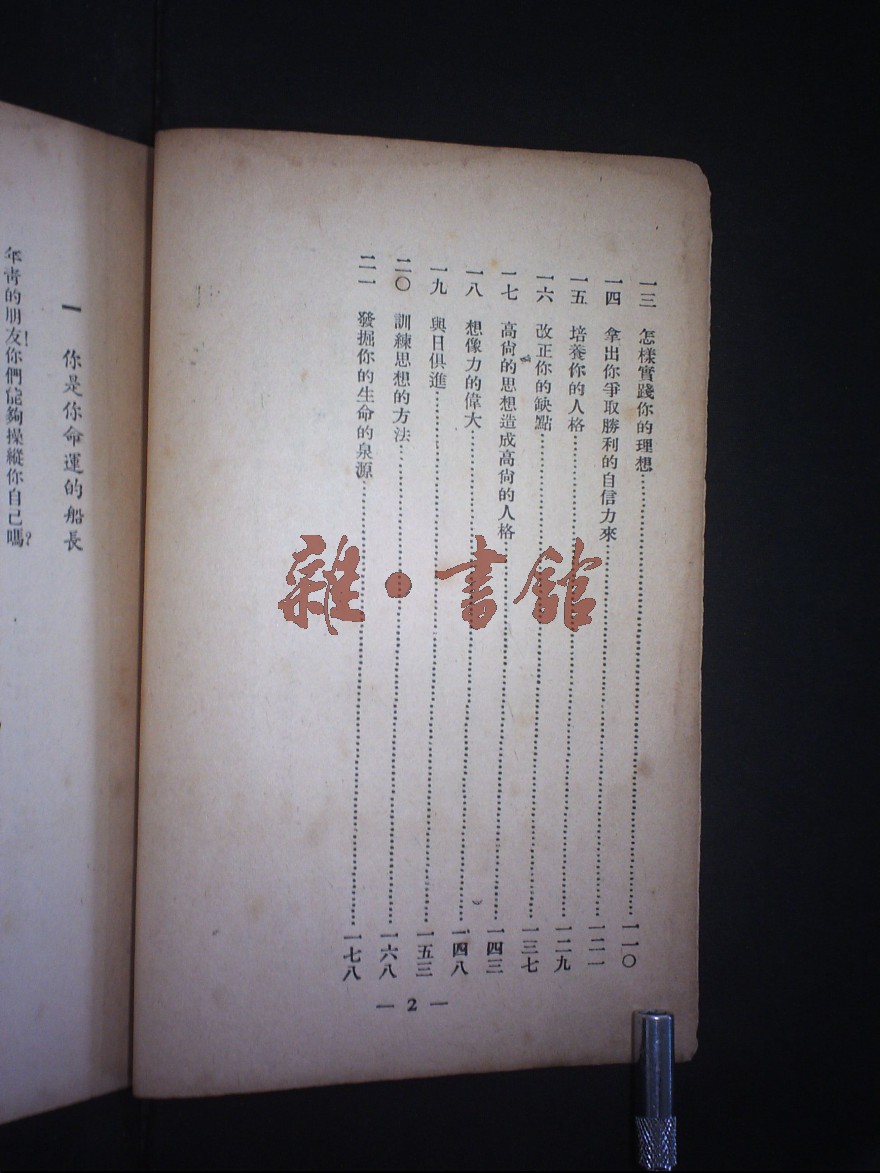 一三　怎樣實踐你的理想…………一一〇
一四　拿出你爭取勝利的自信力來…………一二一
一五　培養你的人格…………一二九
一六　改正你的缺點…………一三七
一七　高尙的思想造成高尙的人格…………一四三
一八　想像力的偉大…………一四八
一九　與日俱進…………一五三
二〇　訓練思想的方法…………一六八
二一　發掘你的生命的泉源…………一七八
— 2 —
雜·書館
一　你是你命運的船長
年青的朋友！你們能夠操縱你自己嗎？